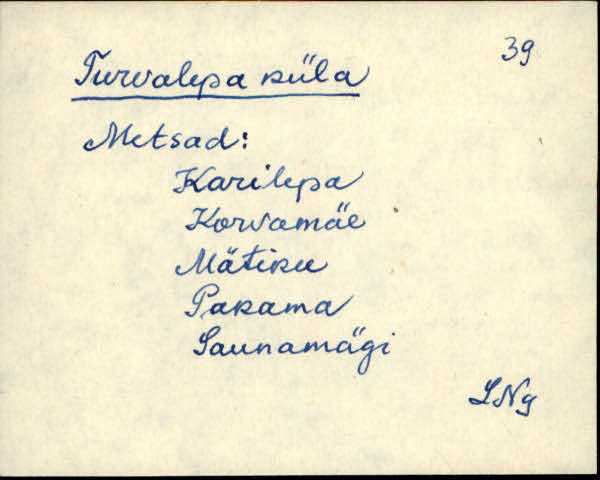 39
Turvalepa küla
Metsad:
Karilepa
Korvamäe
Mätiku
Pakama
Saunamägi
LNg